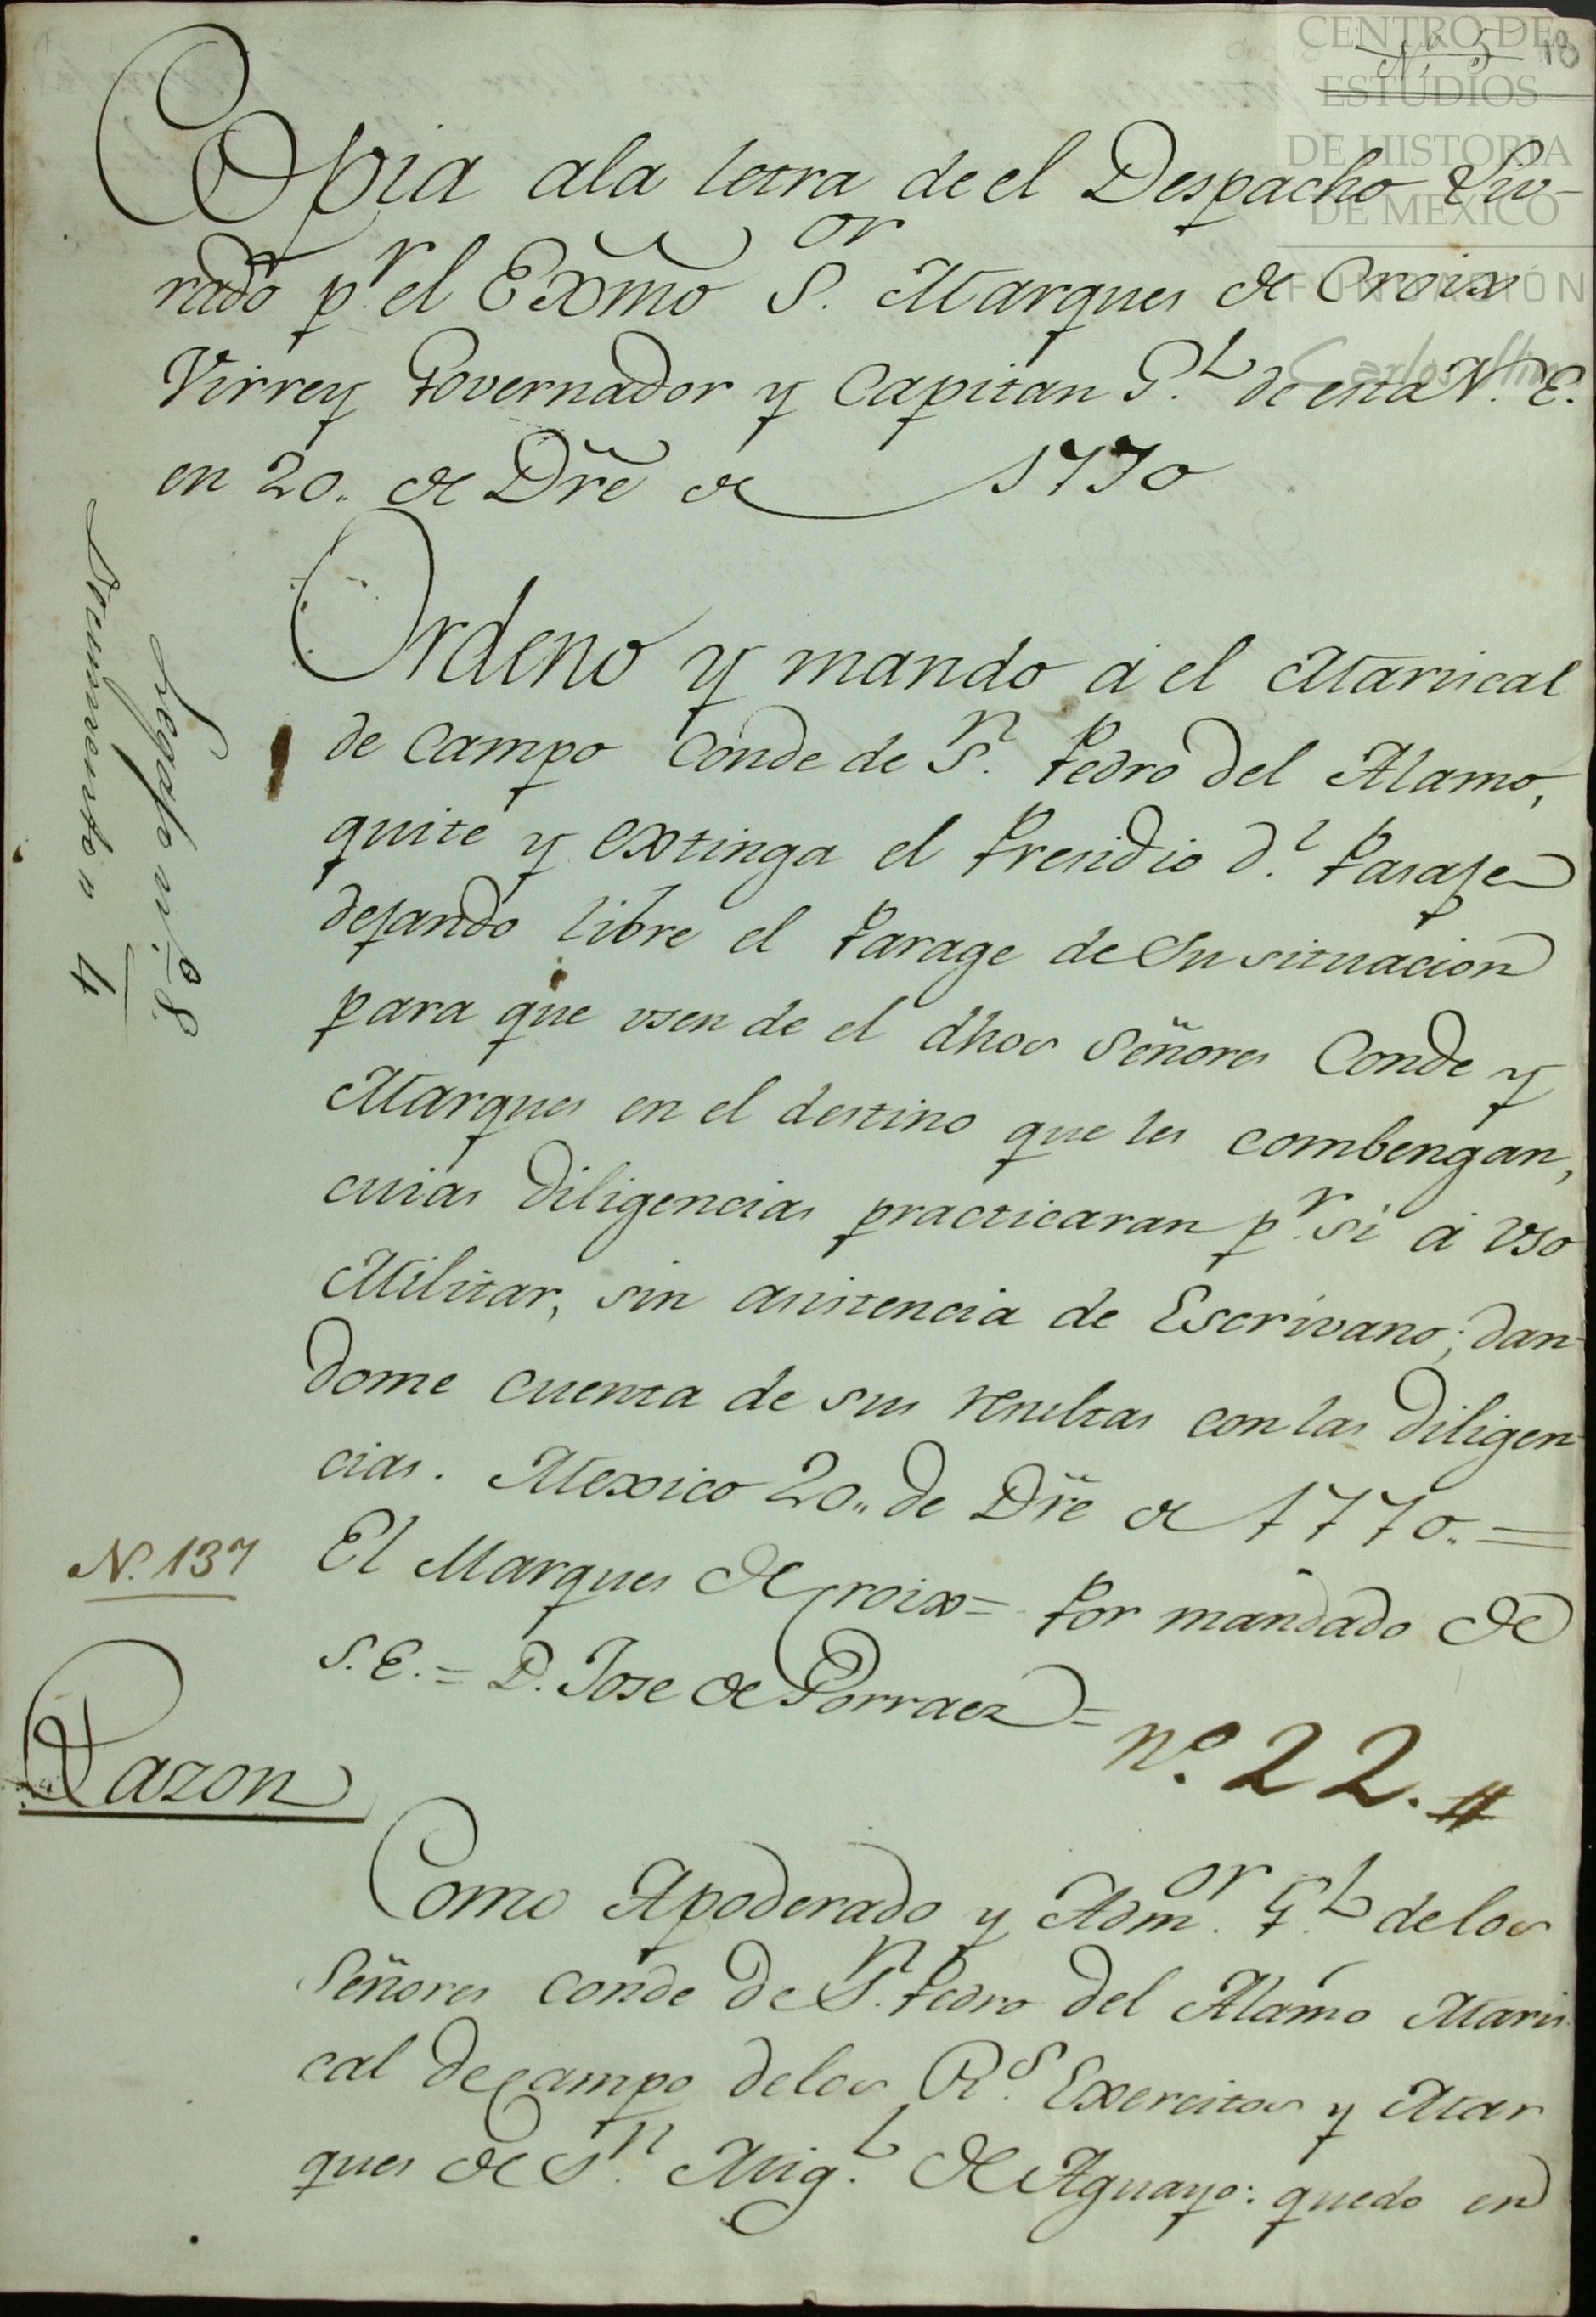 CENTRO DE
ESTUDIOS
DE HISTORIA
DE MEXICO
FUNDACIÓN
Carlos Slim
N.º 5
18
Copia ala letra de el Despacho Liv-
rado p.r el Exmõ S.or Marques de Croix
Virrey Governador y Capitan G.L de esta N. E.
en 20.. de Dre de 1770
Ordeno y mando á el Mariscal
de Campo Conde de S.n Pedro del Alamo,
quite y extinga el Presidio d.l Pasaje
dejando libre el Parage de su situacion
para que usen de el dhos Señores Conde y
Marques en el destino que les combengan,
cuias diligencias practicaran p.r si á uso
Militar, sin asistencia de Escrivano; dan-
dome cuenta de sus resultas con las diligen-
cias. Mexico 20.. de Dre de 1770.. =
El Marques de Croix = Por mandado de
S. E. = D. Jose de Gorraez =
n.º 22. #
Legajo n.º 8.
Documento n 4
N. 137
Razon
Como Apoderado y Adm.or G.L de los
Señores Conde de S.n Pedro del Alamo Maris-
cal de Campo de los R.s Exercitos y Mar
ques de S.n Mig.L de Aguayo: quedo en